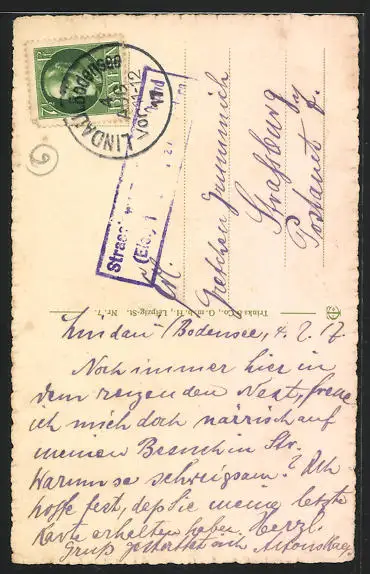 BAYERN
7½
LINDAU i. Bodensee
4. JUL.
VORM. 11-12
17
Strass
(Els.) 1
Frl.
Gretchen Grimmich
Strassburg
Postamt 7.
Trinks & Co., G. m. b. H., Leipzig-St. Nr. 7.
9
Lindau /Bodensee, 4. 7. 17
Noch immer hier in
dem reizenden Nest, freue
ich mich doch närrisch auf
meinen Besuch in Str.
Warum so schweigsam? Ich
hoffe fest, daß Sie meine letzte
Karte erhalten haben. Herzl.
Gruß